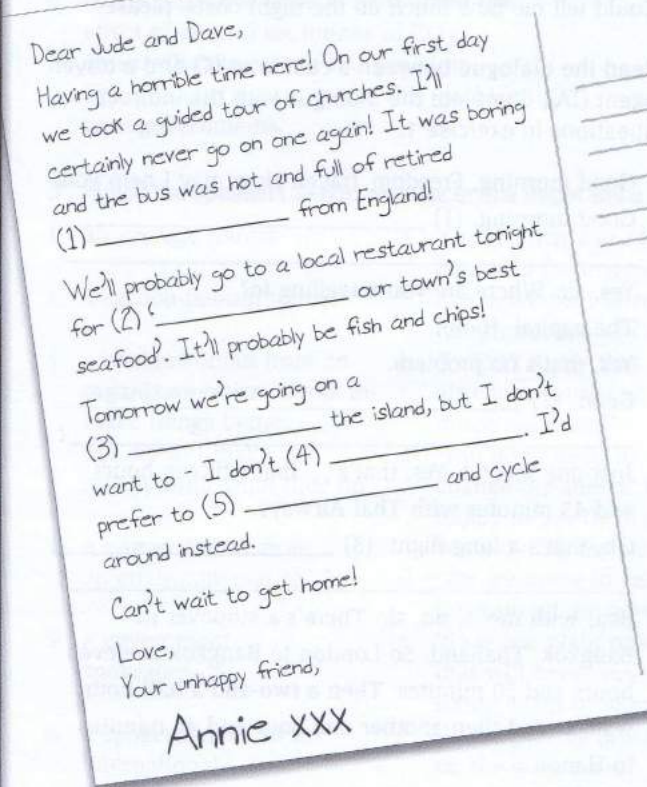 Dear Jude and Dave,
Having a horrible time here! On our first day
we took a guided tour of churches. I'll
certainly never go on one again! It was boring
and the bus was hot and full of retired
(1) ____________ from England!
We'll probably go to a local restaurant tonight
for (2) '____________ our town's best
seafood'. It'll probably be fish and chips!
Tomorrow we're going on a
(3) ____________ the island, but I don't
want to – I don't (4) ____________. I'd
prefer to (5) ____________ and cycle
around instead.
Can't wait to get home!
Love,
Your unhappy friend,
Annie XXX